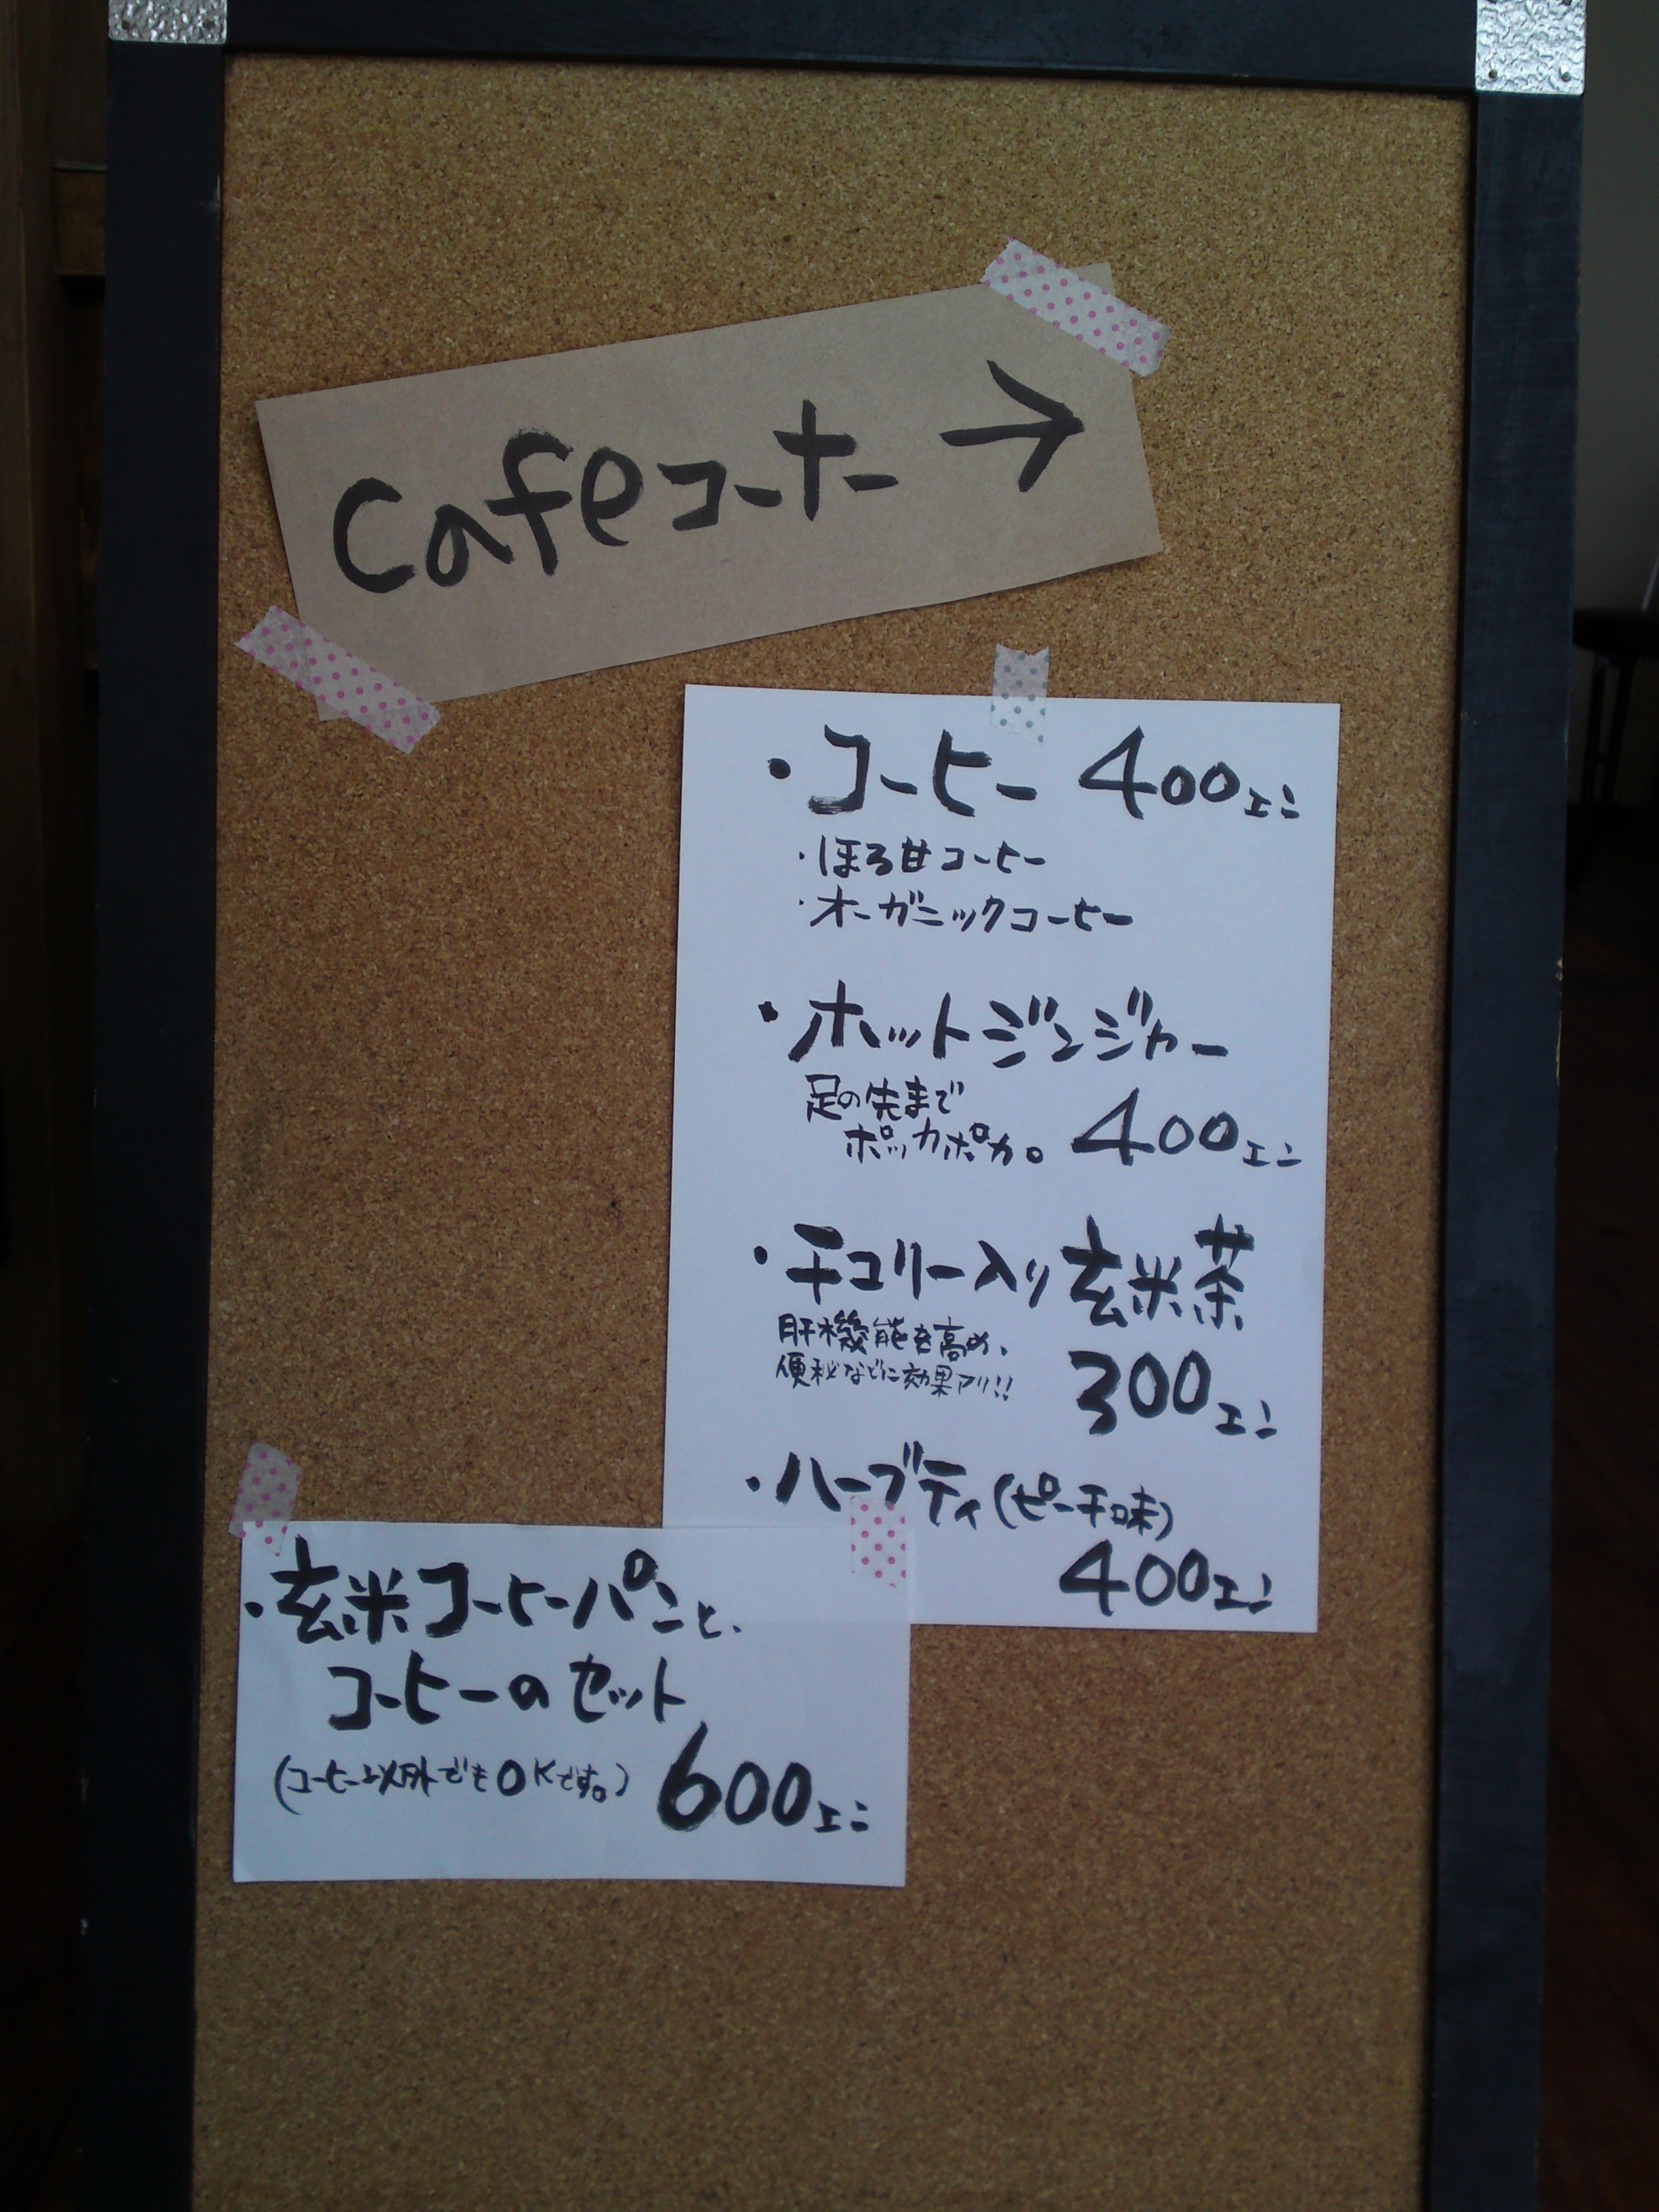 Cafeコーナー →
・コーヒー 400エン
・ほろ甘コーヒー
・オーガニックコーヒー
・ホットジンジャー
足の先まで
ポッカポカ。 400エン
・チコリー入り玄米茶
肝機能を高め、
便秘などに効果アリ!!
300エン
・ハーブティ(ピーチ味)
400エン
・玄米コーヒーパンと、
コーヒーのセット
(コーヒー以外でもOKです。) 600エン